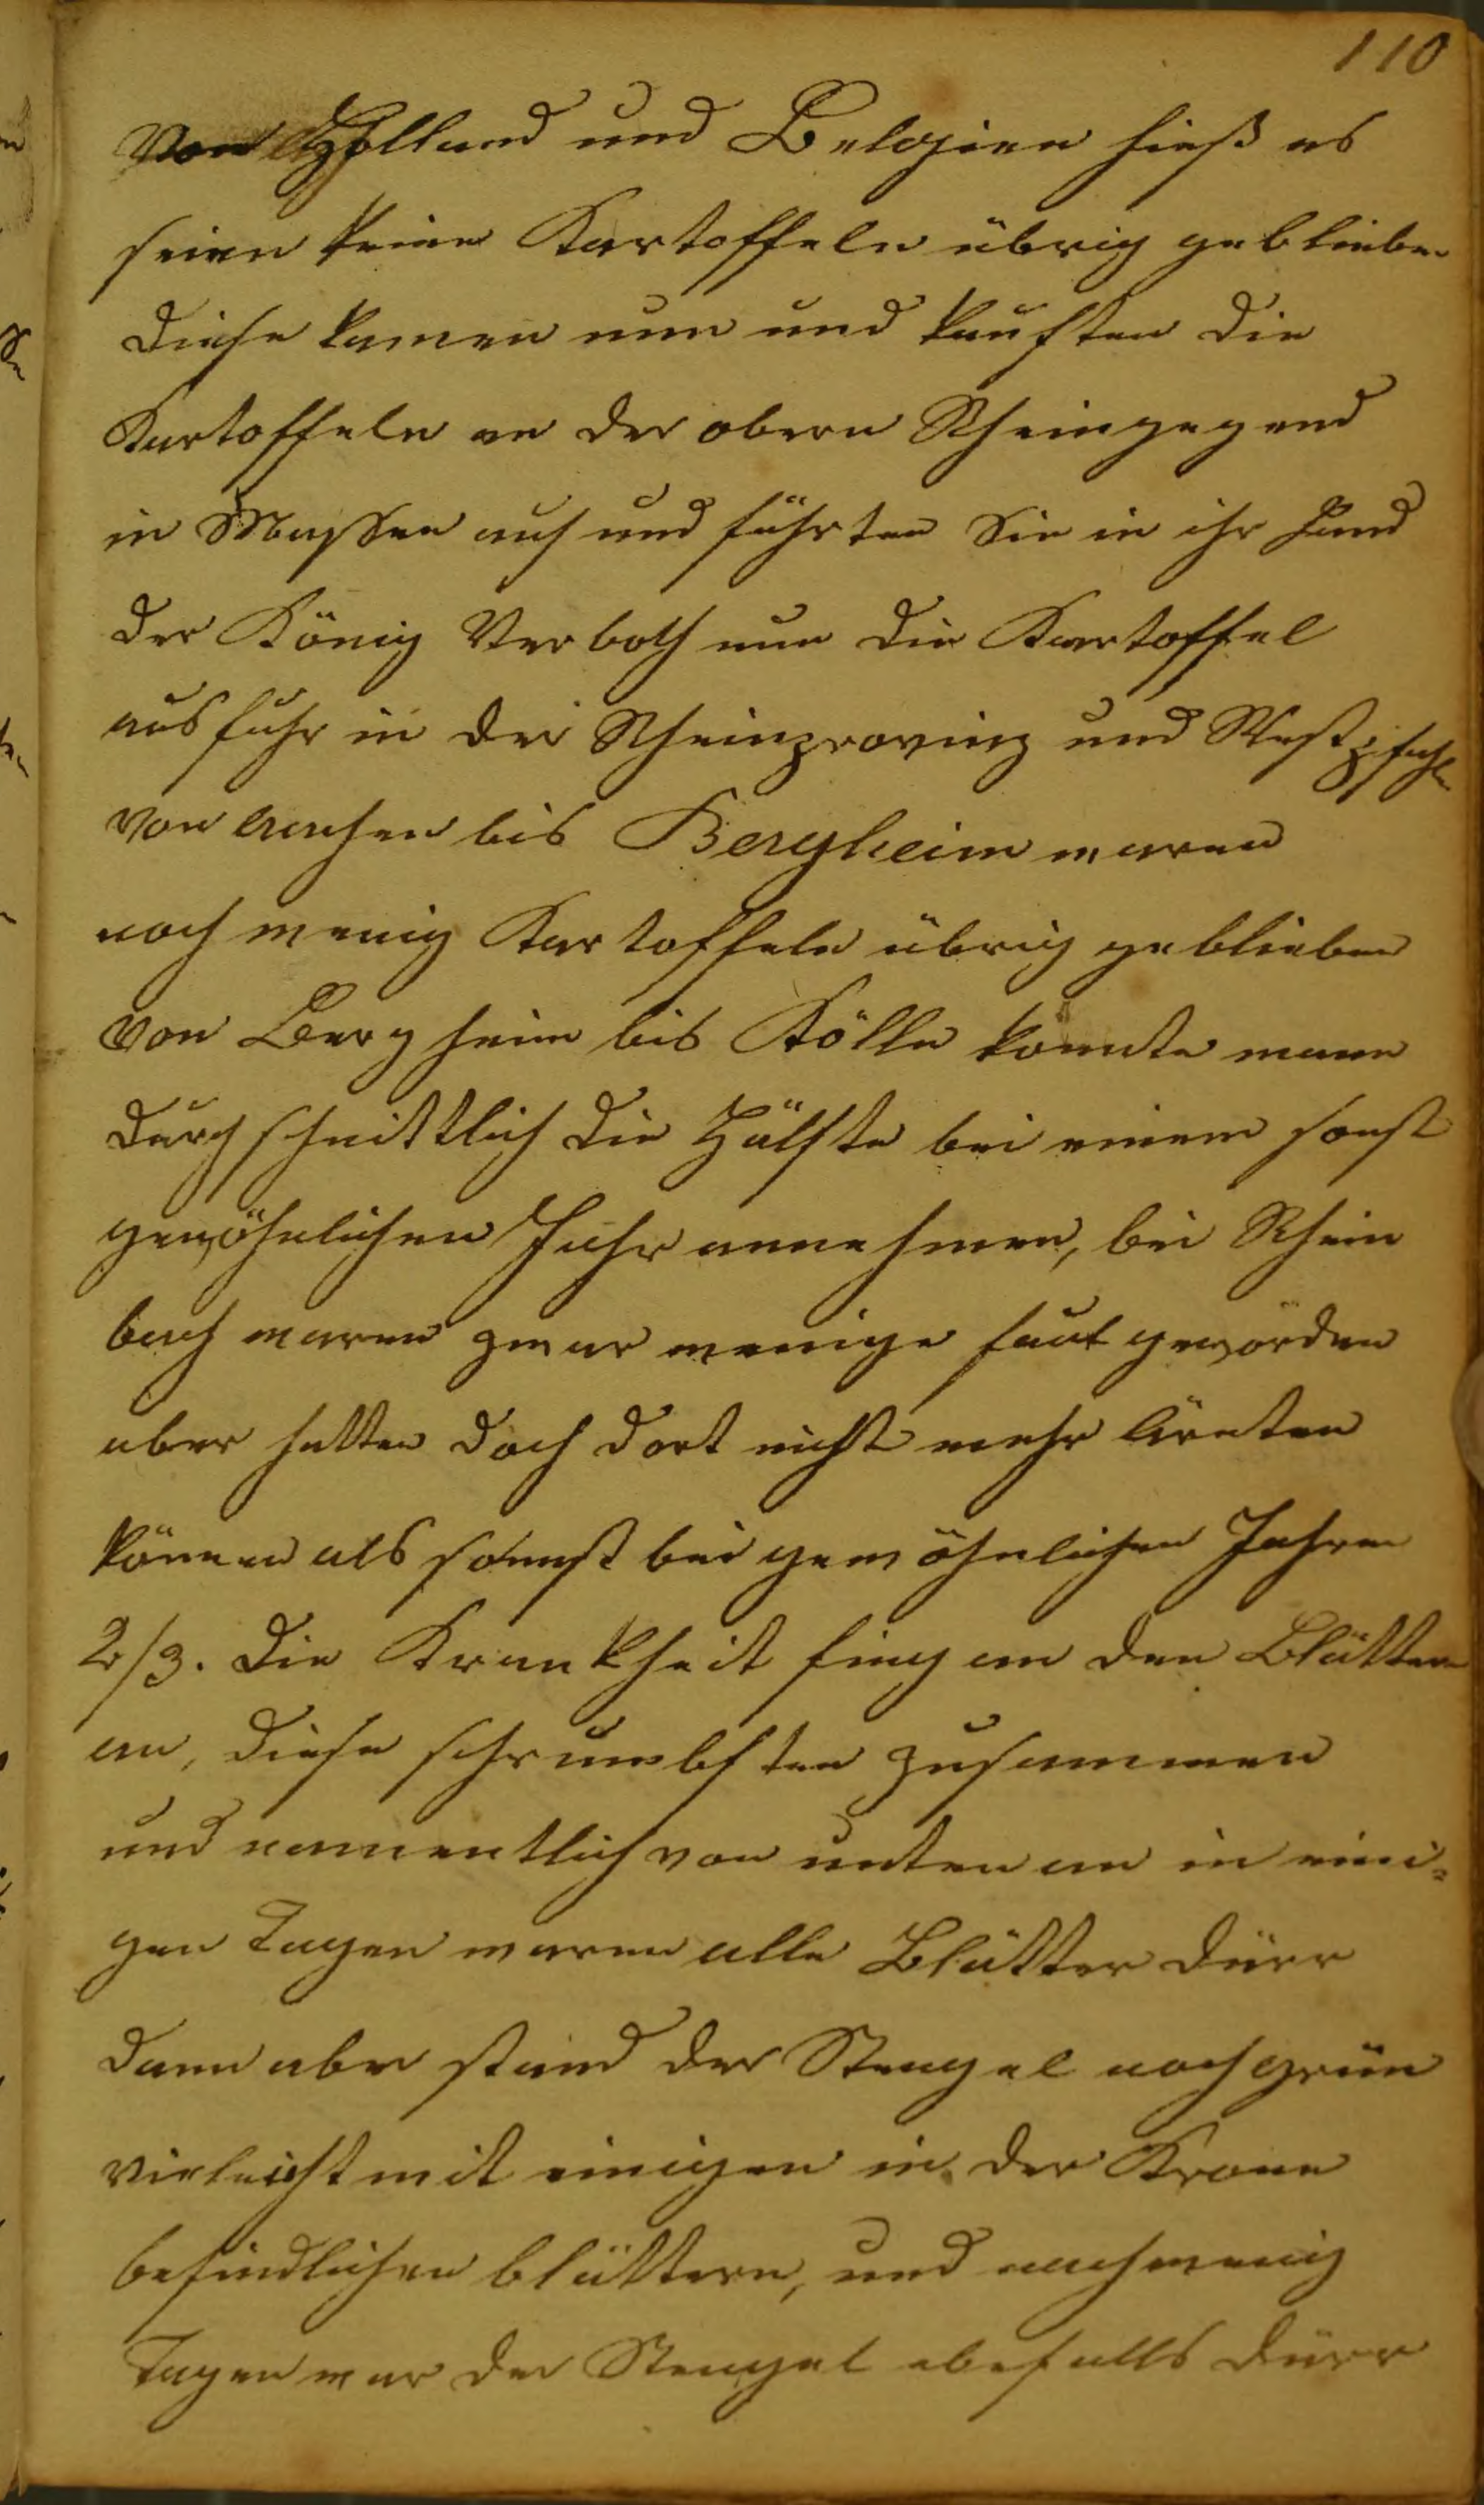 110
Von Holland und Belgien hieß es
seien keine Kartoffeln übrig geblieben
diese kamen nun und kauften die
Kartoffeln an der obern Rheingegend
in Massen auf und führten Sie in ihr Land
der König Verboth nun die Kartoffel
ausfuhr in der Rheinprovinz und Westpfahln
von Aachen bis Bergheim waren
noch wenig Kartoffeln übrig geblieben
von Bergheim bis Kölln konnte mann
durchschnittlich die Hälfte bei einem sonst
gewöhnlichen Jahr annehmen, bei Rhein
bach waren zwar wenige faul geworden
aber hatten doch dort nicht mehr Ärnten
können als sonnst bei gewöhnlichen Jahren
2/3. die Krankheit fing an den Blättern
an, diese schrumbften zusammen
und namentlich von unten an in eini-
gen Tagen waren alle Blätter dürr
dann aber stand der Stengel noch grün
virleicht mit einigen in der Krone
befindlichen blättern, und nach wenig
Tagen war der Stengel ebefalls dürr